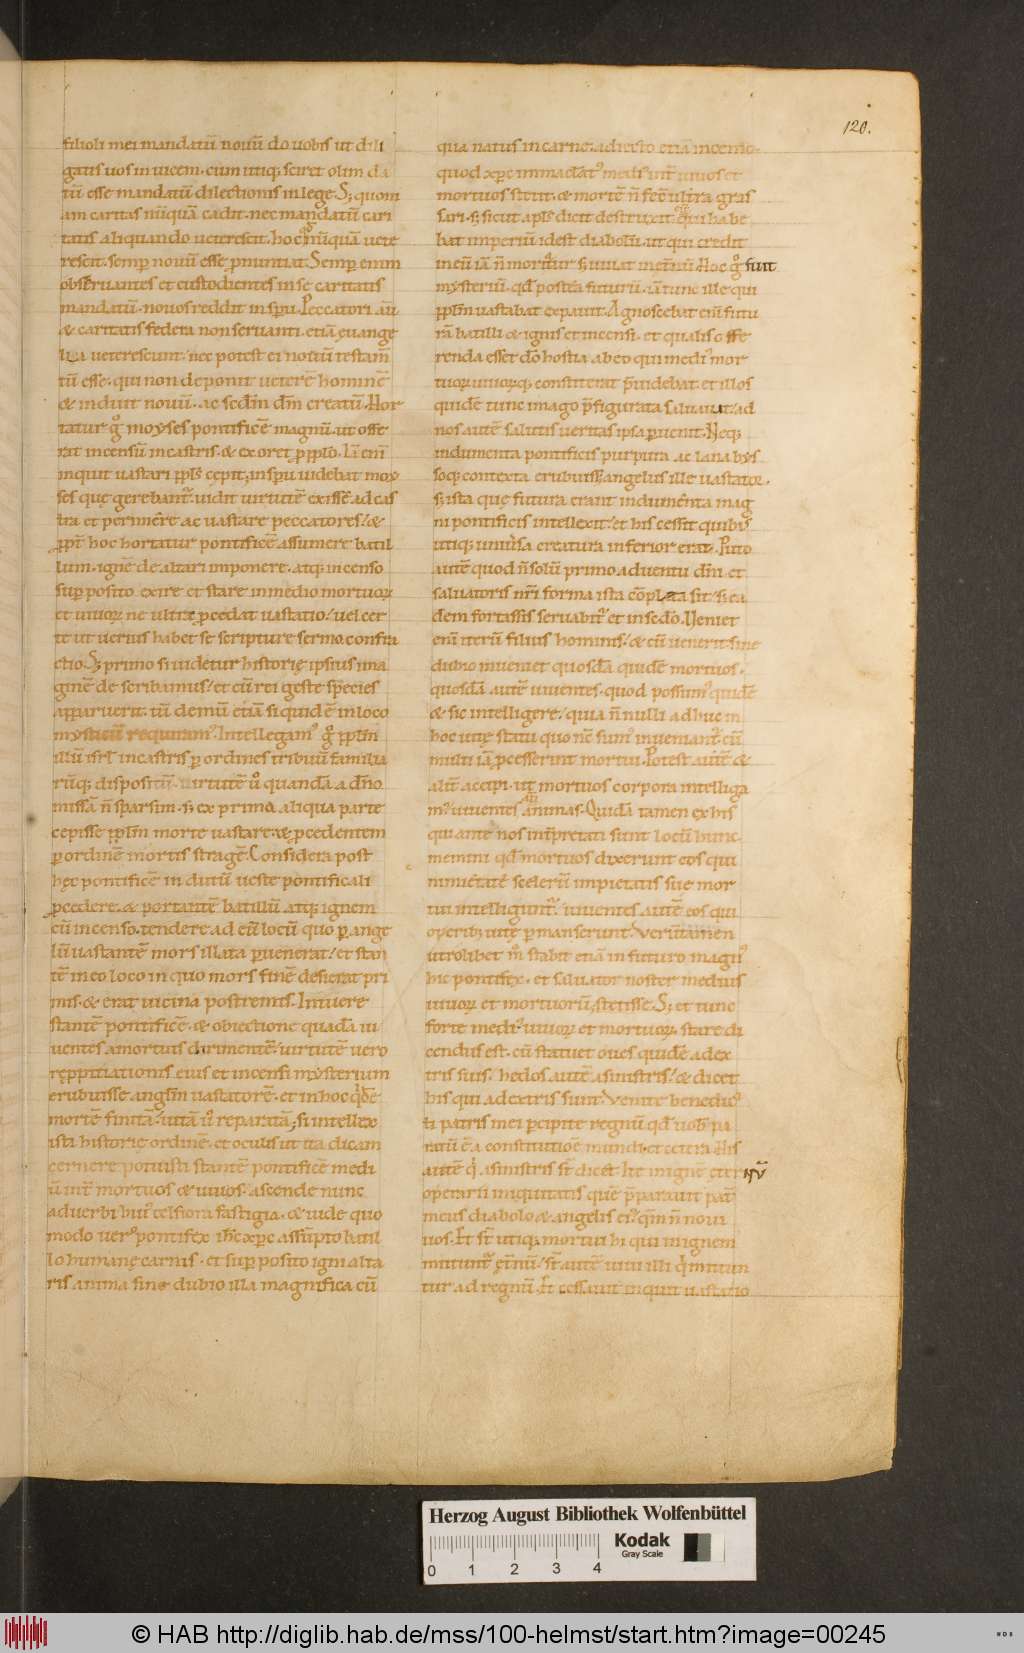 120.
filioli mei mandatū nouū do uobis ut dili
gatis uos inuicem. cum utiq; sciret olim da
tū esse mandatū dilectionis in lege. S; quoni
am caritas nūquā cadit. nec mandatū cari
tatis aliquando ueterescit. hoc nūquā uete
rescit. semp nouū esse pnuntiat. Semp enim
obseruantes et custodientes in se caritatis
mandatū. nouos reddit in spu. Peccatori aū
& caritatis federa non seruanti. etiā euange
lia ueterescunt. nec potest ei nouū testam̄
tū esse. qui non deponit ueterē hominē
& induit nouū. ac scdm dm creatū. Hor
tatur g moyses pontificē magnū. ut offe
rat incensū in castris. & exoret p pplo.
inquit uastari ppls cepit; in spu uidebat moy
ses quę gerebant. uidit uirtutē exisse ad cas
tra et perimere ac uastare peccatores. &
ppt hoc hortatur pontificē assumere batil
lum. ignē de altari imponere. atq; incenso
sup posito exire et stare in medio mortuor
et uiuor. ne ultra pcedat uastatio. uel cer
te ut uerius habet se scripture sermo. confra
ctio. S; primo si uidetur historię ipsius ima
ginē describamus. et cū rei geste species
apparuerit. tū demū etiā siquidē in loco
mysticū requiram. Intellegam g pplm
illū isrl in castris p ordines tribuū familia
rūq; dispositū. uirtutē u quandā a dno
missā n sparsim. s; ex prima aliqua parte
cepisse pplm morte uastare. & pcedentem
p ordinē mortis stragē. Considera post
hęc pontificē indutū ueste pontificali
pcedere. & portantē batillū atq; ignem
cū incenso. tendere ad eū locū quo p ange
lū uastantē mors illata puenerat. et stan
tē in eo loco in quo mors finē desierat pri
mis. & erat uicina postremis. Intuere
stantē pontificē. & obiectione quadā ui
uentes a mortuis dirimentē. uirtutē uero
reppitiationis eius et incensi mysterium
erubuisse anglm uastatorē. et in hoc
mortē finitā. uitā u reparatā; si intellex
isti historię ordinē. et oculis ut ita dicam
cernere potuisti stantē pontificē medi
ū int mortuos & uiuos. ascende nunc
ad uerbi hui celsiora fastigia. & uide quo
modo uerus pontifex ihc xpc assūpto batil
lo humanę carnis. et sup posito igni alta
ris anima sine dubio illa magnifica cū
qua natus in carne. adiecto etiā incenso.
quod xpc immaculat medi int uiuos et
mortuos stetit. & mortē n fec ultra gras
sari. s; sicut apls dicit destruxit. qui habe
bat imperiū idest diabolū. ut qui credit
in eū iā n moriatur s; uiuat in eternū. Hoc g fuit
mysteriū. qd postea futurū. iā tunc ille qui
pplm uastabat expauit. Agnoscebat eni futu
rā batilli & ignis et incensi. et qualis offe
renda esset do hostia ab eo qui medi mor
tuor uiuorq; constiterat puidebat. et illos
quidē tunc imago pfigurata saluauit. ad
nos autē salutis ueritas ipsa puenit. Neq;
indumenta pontificis purpura ac lana bys
soq; contexta erubuisset angelus ille uastator.
s; ista quę futura erant indumenta mag
ni pontificis intellexit. et his cessit quibus
utiq; uniuersa creatura inferior erat. Puto
autē quod n solū primo aduentu dni et
saluatoris nri forma ista cōpleta sit. s; ea
dem fortassis seruabitur et in secdo. Veniet
enī iterū filius hominis. & cū uenerit sine
dubio inueniet quosdā quidē mortuos.
quosdā autē uiuentes. quod possum quidē
& sic intelligere. quia n nulli adhuc in
hoc uitę statu quo nc sum inueniant. cū
multi iā pcesserint mortui. Potest autē &
alit accipi. ut mortuos corpora intelliga
m. uiuentes animas. Quidā tamen ex his
qui ante nos intpretati sunt locū hunc
memini qd mortuos dixerunt eos qui
nimietate scelerū impietatis sue mor
tui intelligunt. uiuentes autē eos qui
operib; uitę pmanserunt. Verūtamen
utrolibet m stabit etiā in futuro magn
hic pontifex. et saluator noster medius
uiuor et mortuorū; stetisse. S; et tunc
forte medi uiuor et mortuor. stare di
cendus est. cū statuet oues quidē a dex
tris suis. hedos autē a sinistris. & dicet
his qui a dextris sunt. Venite benedic
ti patris mei pcipite regnū qd uob pa
ratū ē a constitutiōe mundi. et cetera. His
autē q a sinistris st dicet. Ite in ignē eternū
operarii iniquitatis quē pparauit pat
meus diabolo & angelis ei. qm n noui
uos. Et st utiq; mortui hi qui in ignem
mittunt etnū. st autē uiui illi q mittun
tur ad regnū. Et cessauit inquit uastatio
Herzog August Bibliothek Wolfenbüttel
Kodak
Gray Scale
0 1 2 3 4
© HAB http://diglib.hab.de/mss/100-helmst/start.htm?image=00245